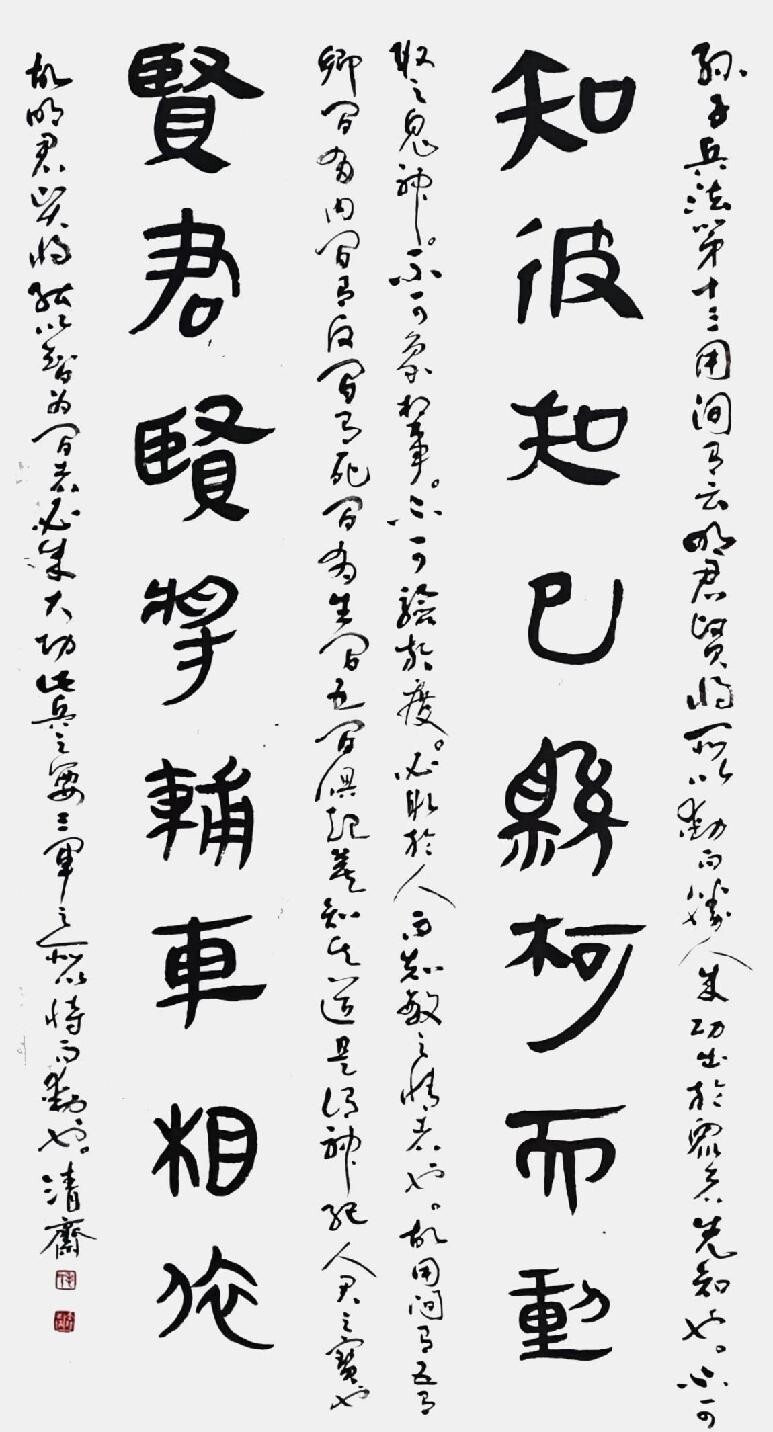 孫子兵法第十三用间有云明君賢將所以動而勝人成功出於眾者先知也。不可
知彼知己縣柯而動
取之鬼神。不可象於事。不可驗於度。必取於人而知敵之情者也。故用间有五有
鄉间有内间有反间有死间有生间五间俱起莫知其道是谓神紀人君之寶也
賢君賢將輔車相依
故明君賢將能以智为间者必成大功此兵之要三軍之所以恃而動也。清齋